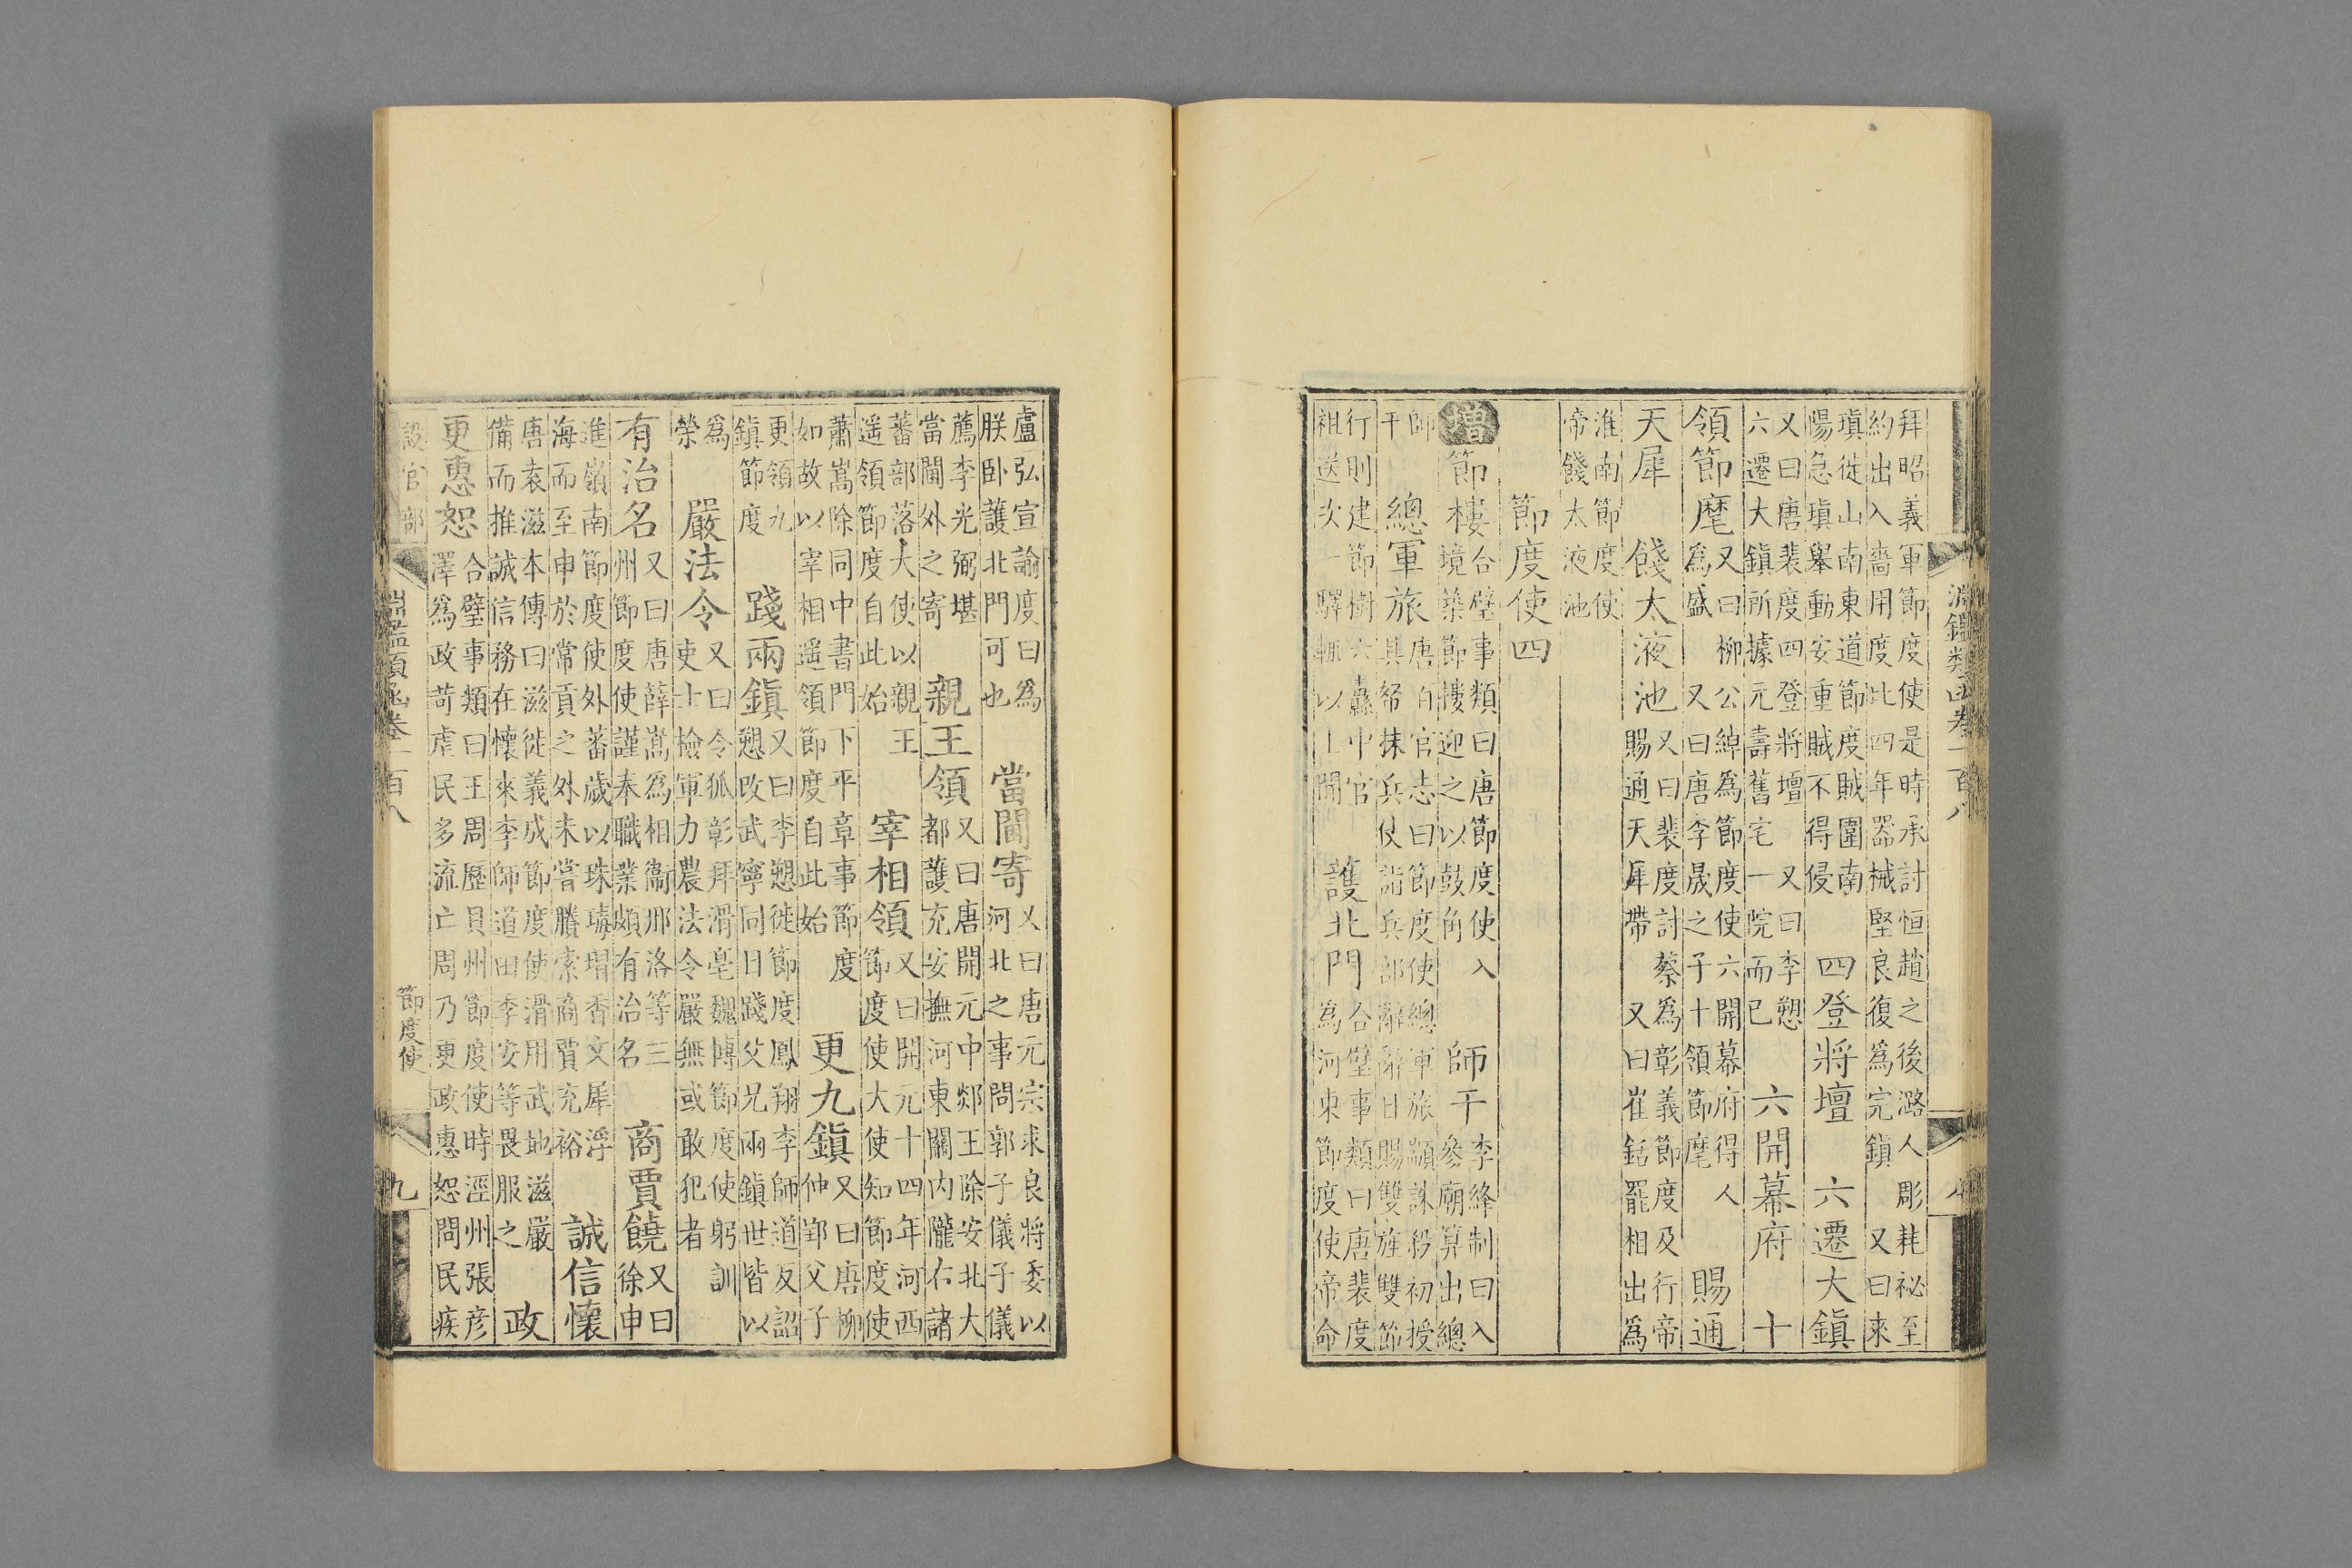 淵鑑類函卷一百八 八
拜昭義軍節度使是時承討恒趙之後潞人彫耗祕至
約出入嗇用度比四年器械堅良復爲完鎮 又曰來
瑱徙山南東道節度賊圍南
陽急瑱舉動安重賊不得侵
四登將壇 六遷大鎮
又曰唐裴度四登將壇 又曰李愬
六遷大鎮所據元壽舊宅一院而已
六開幕府 十
領節麾
又曰柳公綽爲節度使六開幕府得人
爲盛 又曰唐李晟之子十領節麾
賜通
天犀 餞太液池
又曰裴度討蔡爲彰義節度及行帝
賜通天犀帶 又曰崔銛罷相出爲
淮南節度使
帝餞太液池
節度使四
增節樓
合璧事類曰唐節度使入
境築節樓迎之以鼓角
師干
李絳制曰入
參廟算出總
師
干
總軍旅
唐百官志曰節度使總軍旅顓誅殺初授
具帑抹兵仗詣兵部辭辭日賜雙旌雙節
行則建節樹六纛中官
祖送次一驛輒以上聞
護北門
合璧事類曰唐裴度
爲河東節度使帝命
盧弘宣諭度曰爲
朕卧護北門可也
當閫寄
又曰唐元宗求良將委以
河北之事問郭子儀子儀
薦李光弼堪
當閫外之寄
親王領
又曰唐開元中郯王除安北大
都護充安撫河東關内隴右諸
蕃部落大使以親王
遥領節度自此始
宰相領
又曰開元十四年河西
節度使大使知節度使
蕭嵩除同中書門下平章事節度
如故以宰相遥領節度自此始
更九鎮
又曰唐柳
仲郢父子
更領九
鎮節度
踐兩鎮
又曰李愬徙節度鳳翔李師道反詔
愬改武寧同日踐父兄兩鎮世皆以
爲
榮
嚴法令
又曰令狐彰拜滑亳魏博節度使躬訓
吏士檢軍力農法令嚴無或敢犯者
有治名
又曰唐薛嵩爲相衞邢洛等三
州節度使謹奉職業頗有治名
商賈饒
又曰
徐申
進嶺南節度使外蕃歲以珠瑇瑁香文犀浮
海而至申於常貢之外未嘗賸索商賈充裕
誠信懷
唐袁滋本傳曰滋徙義成節度使滑用武地滋嚴
備而推誠信務在懷來李師道田季安等畏服之
政
更惠恕
合璧事類曰王周歷貝州節度使時涇州張彦
澤爲政苛虐民多流亡周乃更政惠恕問民疾
設官部 淵鑑類函卷一百八 節度使 九